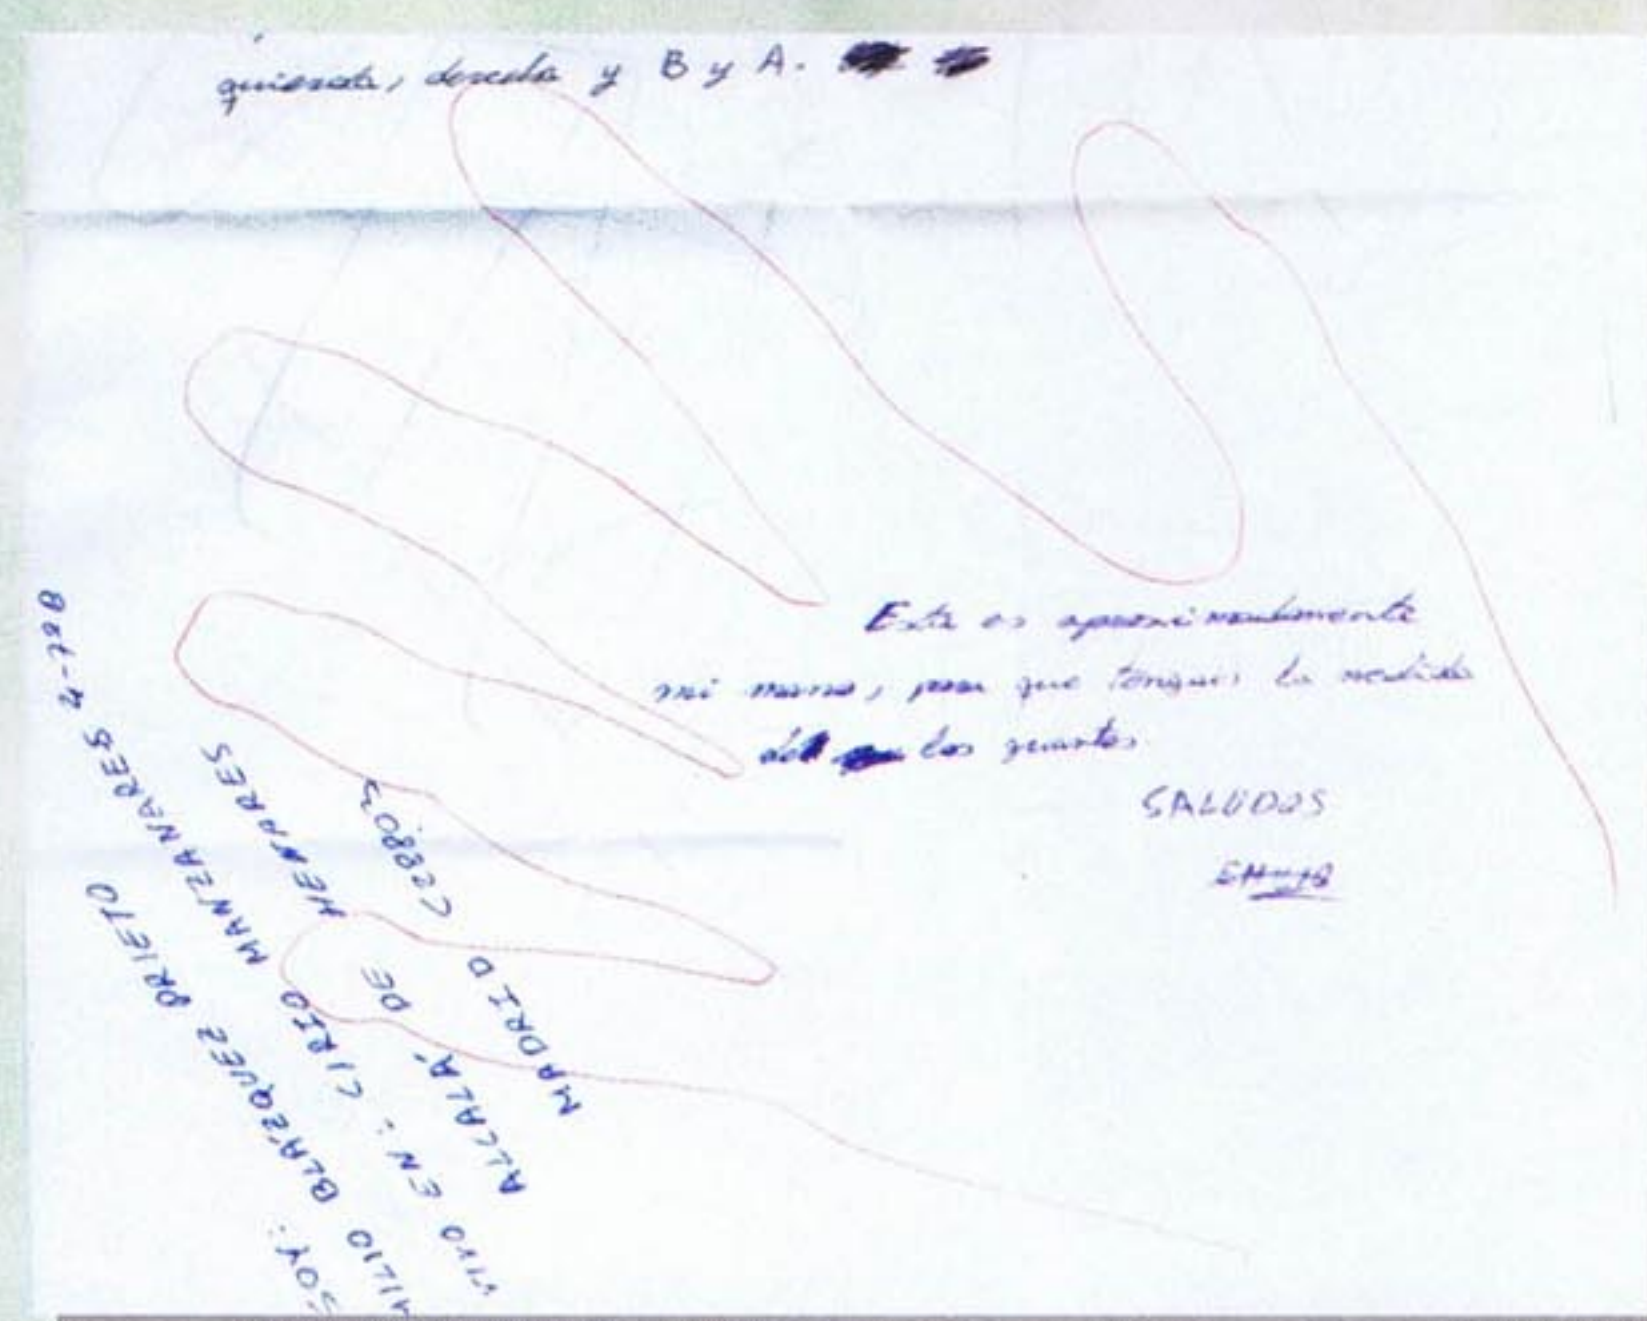 quierda, derecha y B y A.
Esta es aproximadamente
mi mano, para que tengais la medida
de los guantes
SALUDOS
EMILIO
SOY:
MILIO BLÁZQUEZ PRIETO
VIVO EN: C/ RIO MANZANARES 4-7ºB
ALCALÁ DE HENARES
MADRID C/28803